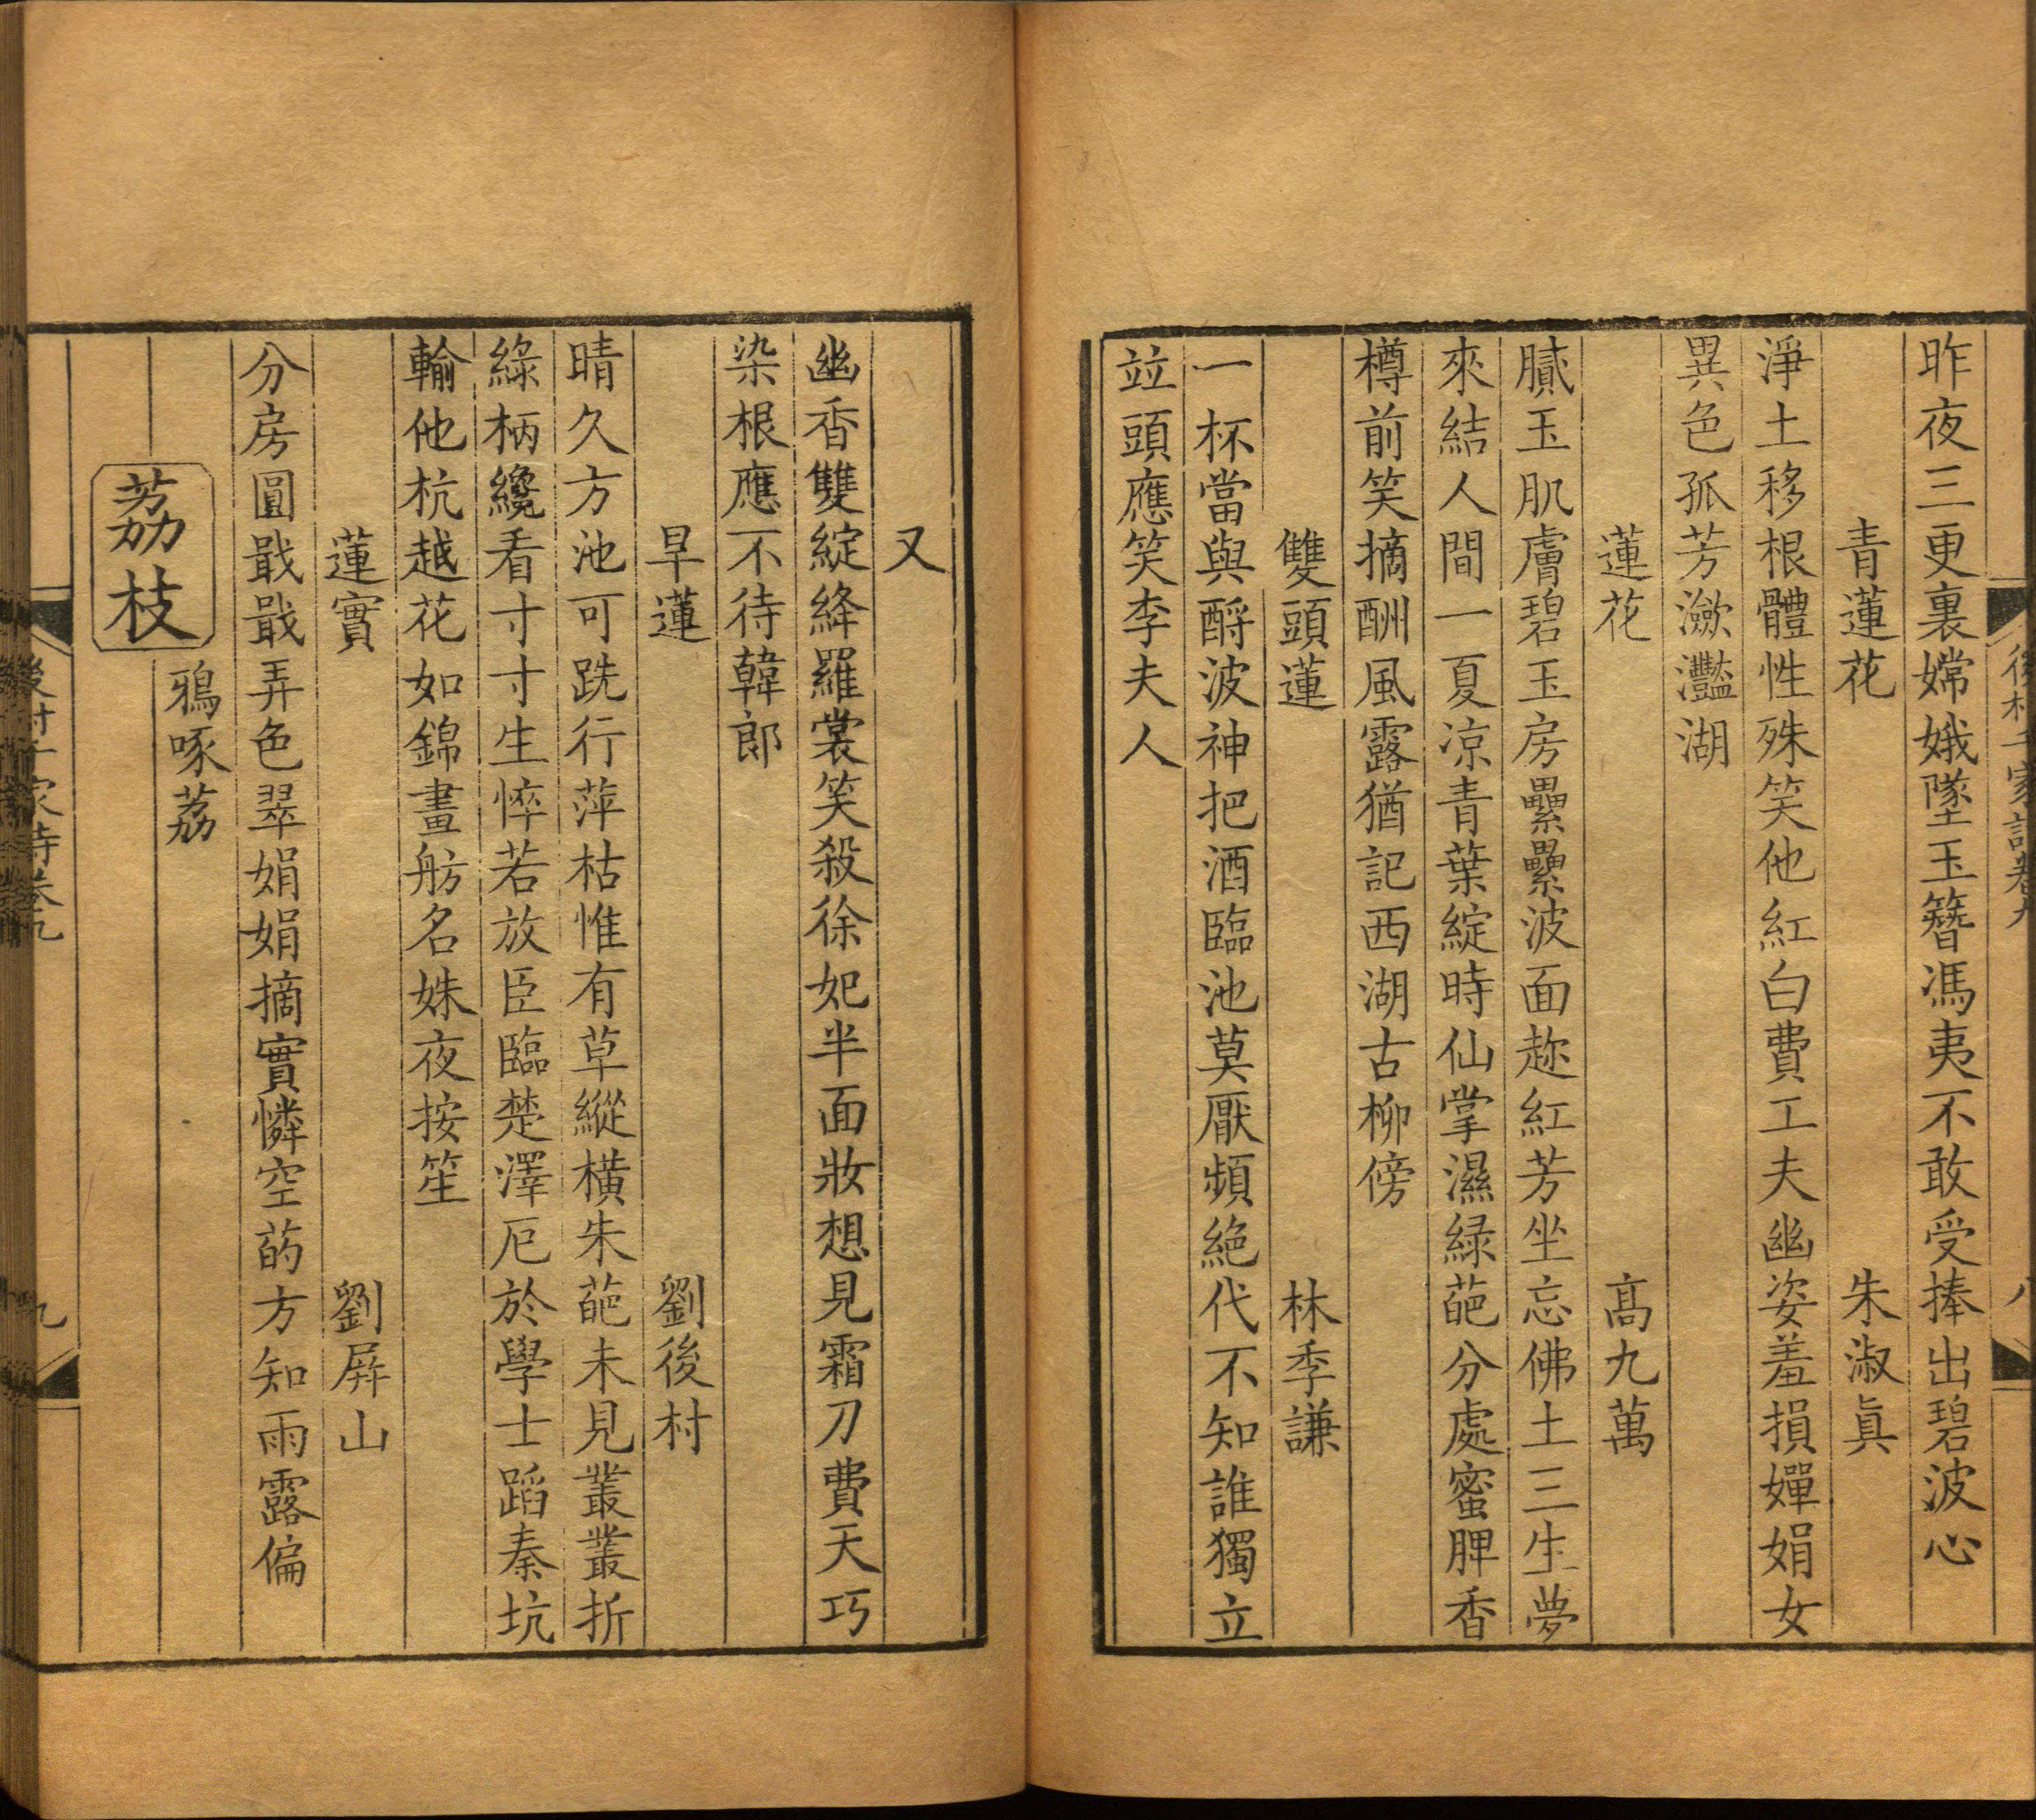 昨夜三更裏嫦娥墜玉簪馮夷不敢受捧出碧波心
青蓮花 朱淑眞
淨土移根體性殊笑他紅白費工夫幽姿羞損嬋娟女
異色孤芳瀲灩湖
蓮花 高九萬
膩玉肌膚碧玉房纍纍波面趂紅芳坐忘佛土三生夢
來結人間一夏凉青葉綻時仙掌濕緑葩分處蜜脾香
樽前笑摘酬風露猶記西湖古柳傍
雙頭蓮 林季謙
一杯當與酹波神把酒臨池莫厭頻絕代不知誰獨立
竝頭應笑李夫人
又
幽香雙綻絳羅裳笑殺徐妃半面妝想見霜刀費天巧
染根應不待韓郎
早蓮 劉後村
晴久方池可跣行萍枯惟有草縱橫朱葩未見叢叢折
綠柄纔看寸寸生悴若放臣臨楚澤厄於學士蹈秦坑
輸他杭越花如錦畫舫名姝夜按笙
蓮實 劉屛山
分房圓戢戢弄色翠娟娟摘實憐空菂方知雨露偏
鴉啄荔
荔枝
後村千家詩卷九
九